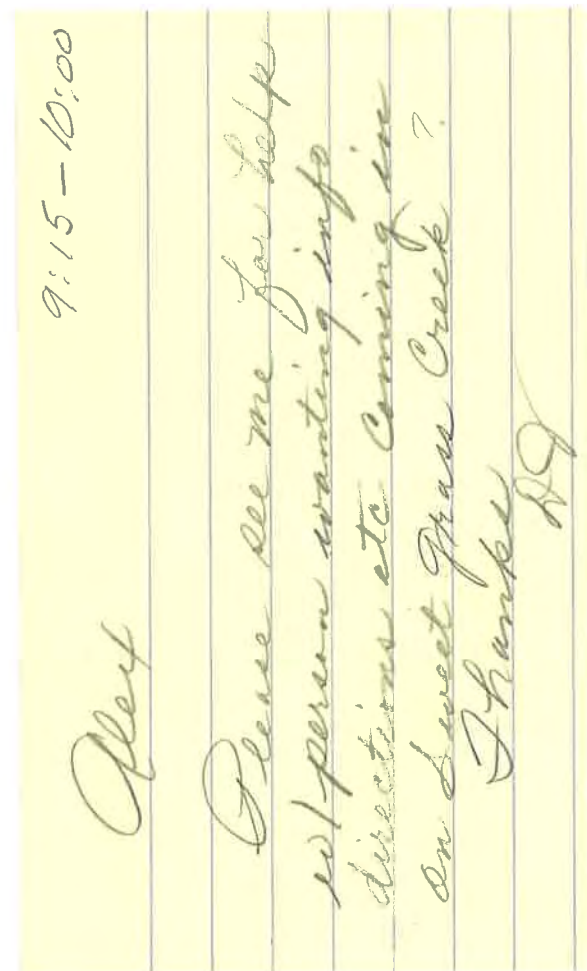 Alex 9:15-10:00
Please see me for help
w/ person wanting info
directions etc coming in
on Sweet Grass Creek ?
Thanks
DJ